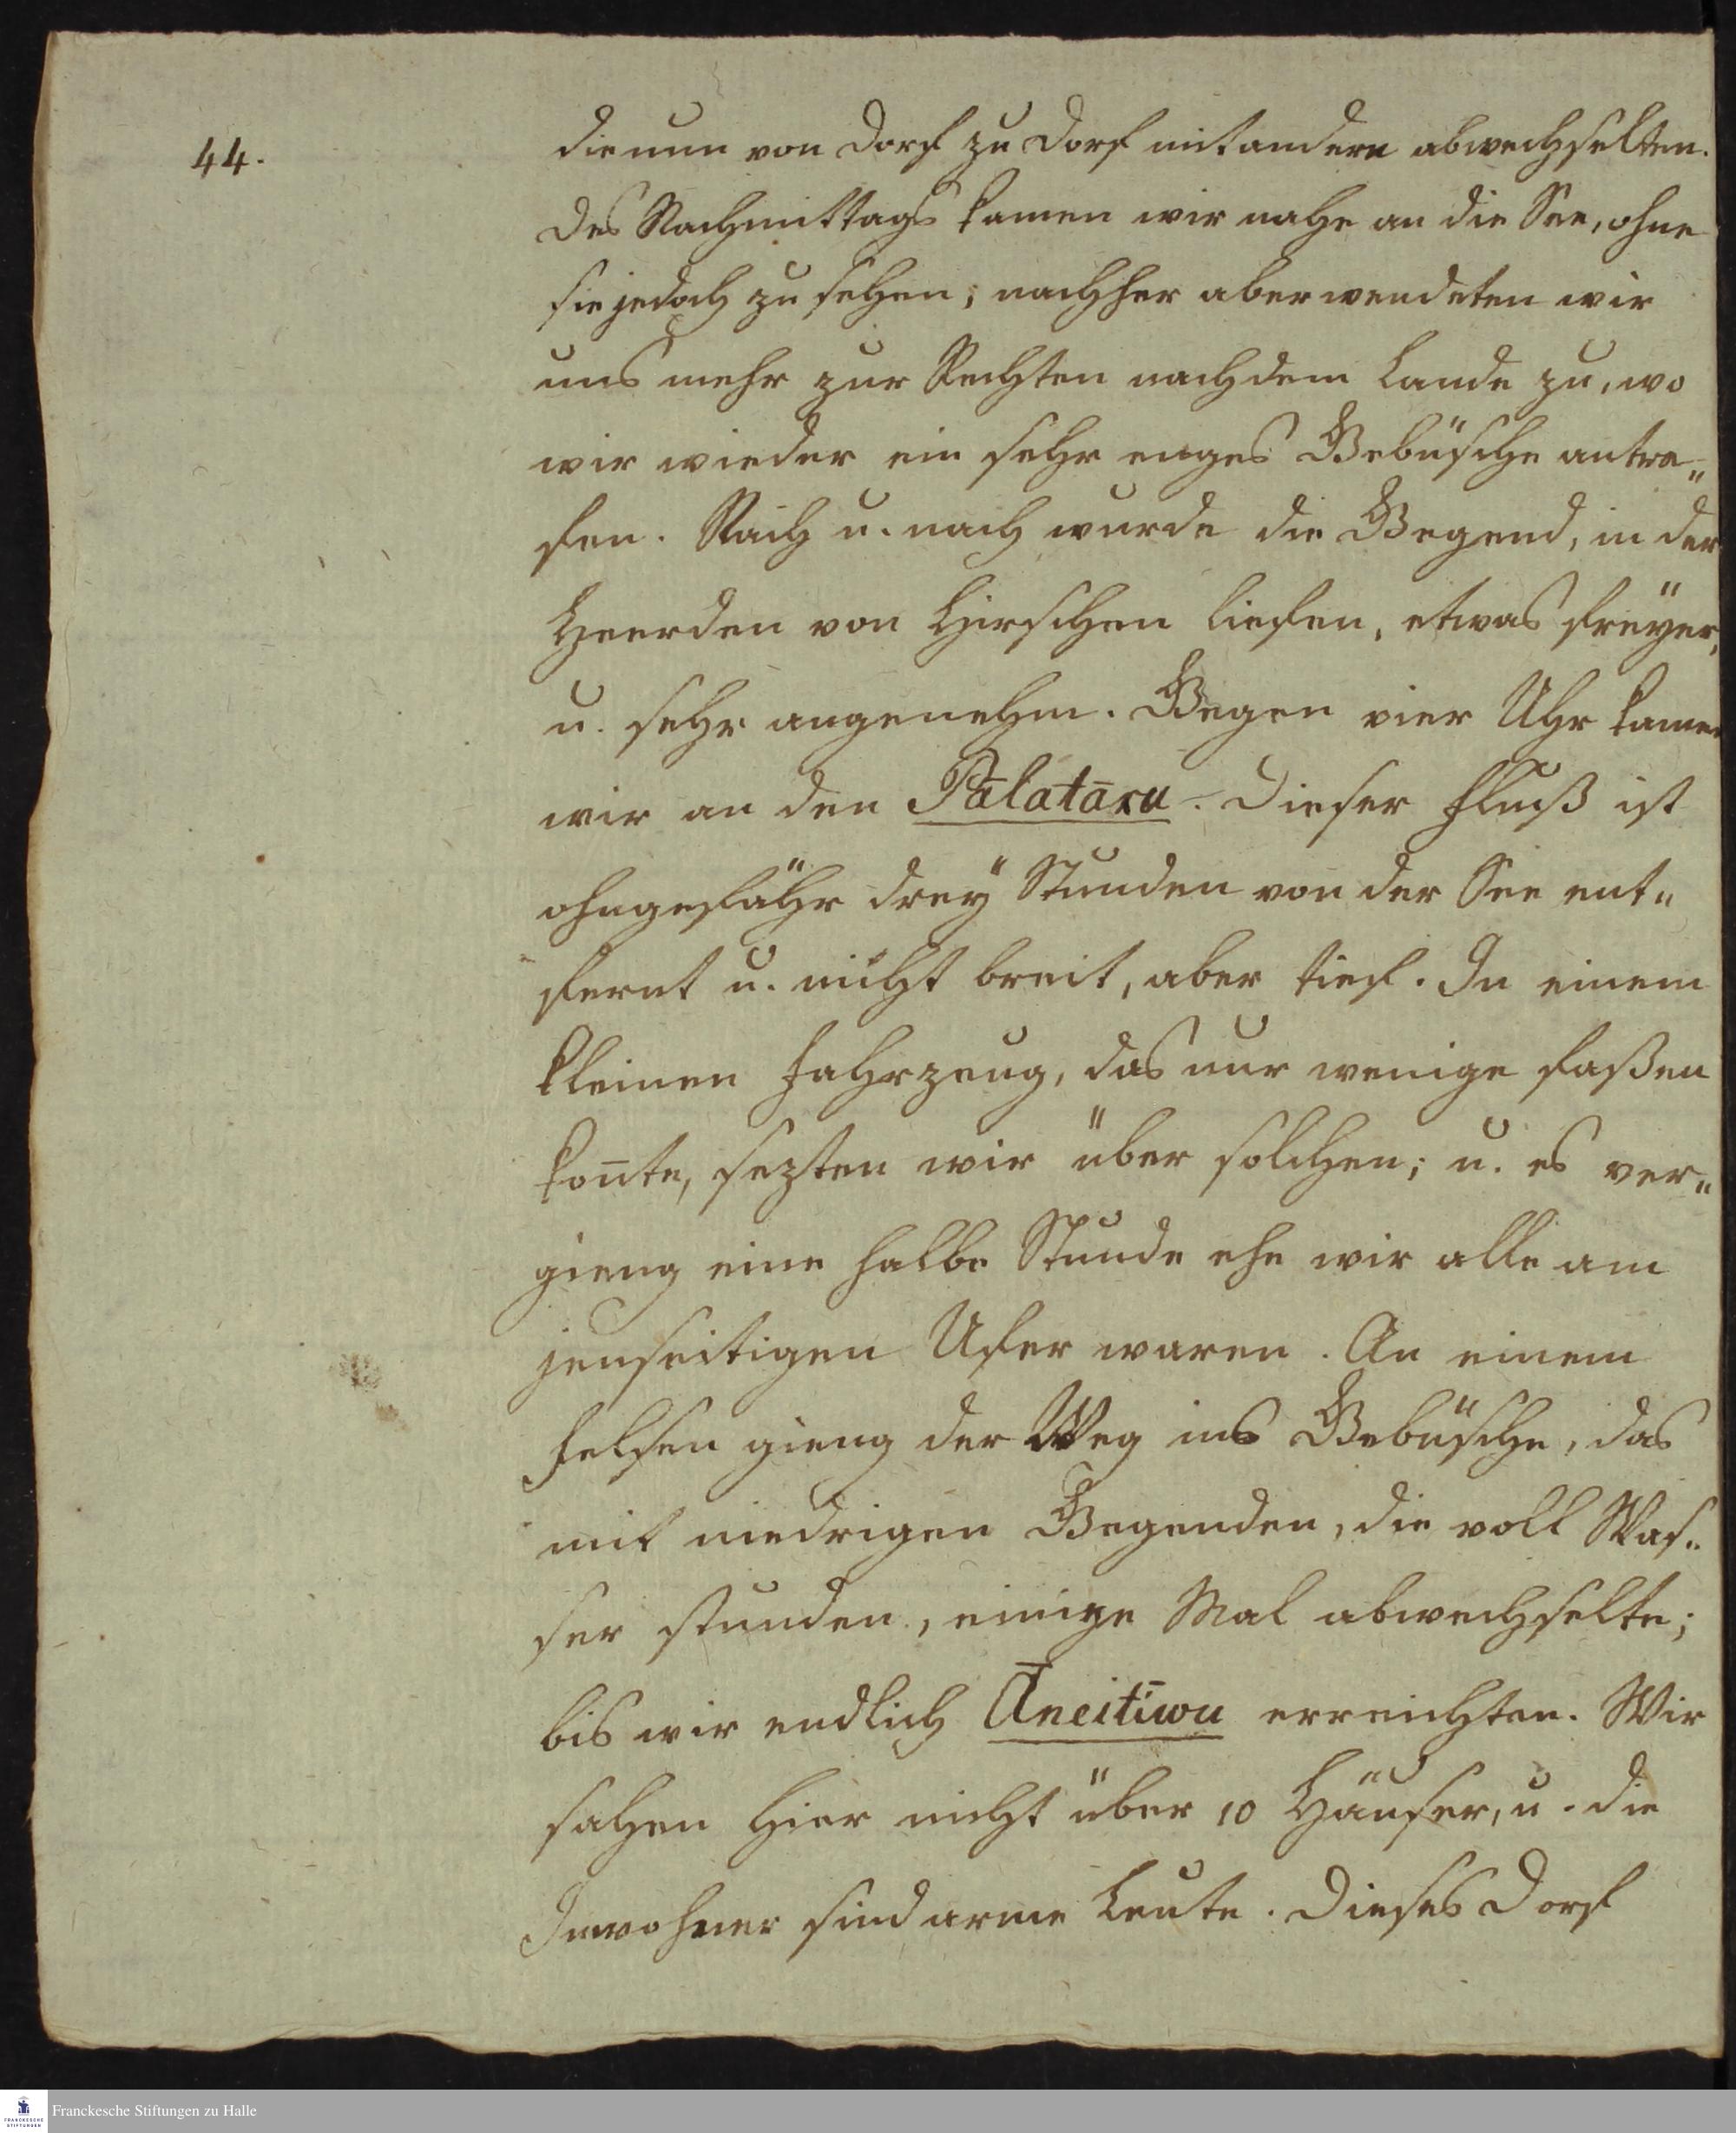 44.
die nun von Dorf zu Dorf mit andern abwechselten.
Des Nachmittags kamen wir nahe an die See, ohne
sie jedoch zu sehen; nachher aber wendeten wir
uns mehr zur Rechten nach dem Lande zu, wo
wir wieder ein sehr enges Gebüsche antra„
fen. Nach u. nach wurde die Gegend, in der
Heerden von Hirschen liefen, etwas freÿer,
u. sehr angenehm. Gegen vier Uhr kamen
wir an den Pālatāru. Dieser Fluß ist
ohngefähr dreÿ Stunden von der See ent„
fernt u. nicht breit, aber tief. In einem
kleinen Fahrzeug, das nur wenige faßen
kon̄te, sezten wir über solchen; u. es ver„
gieng eine halbe Stunde ehe wir alle am
jenseitigen Ufer waren. An einem
Felsen gieng der Weg ins Gebüsche, das
mit niedrigen Gegenden, die voll Was„
ser stunden, einige Mal abwechselte;
bis wir endlich Āneitīwu erreichten. Wir
sahen hier nicht über 10 Häuser, u. die
Inwohner sind arme Leute. Dieses Dorf
Franckesche Stiftungen zu Halle
FRANCKESCHE
STIFTUNGEN